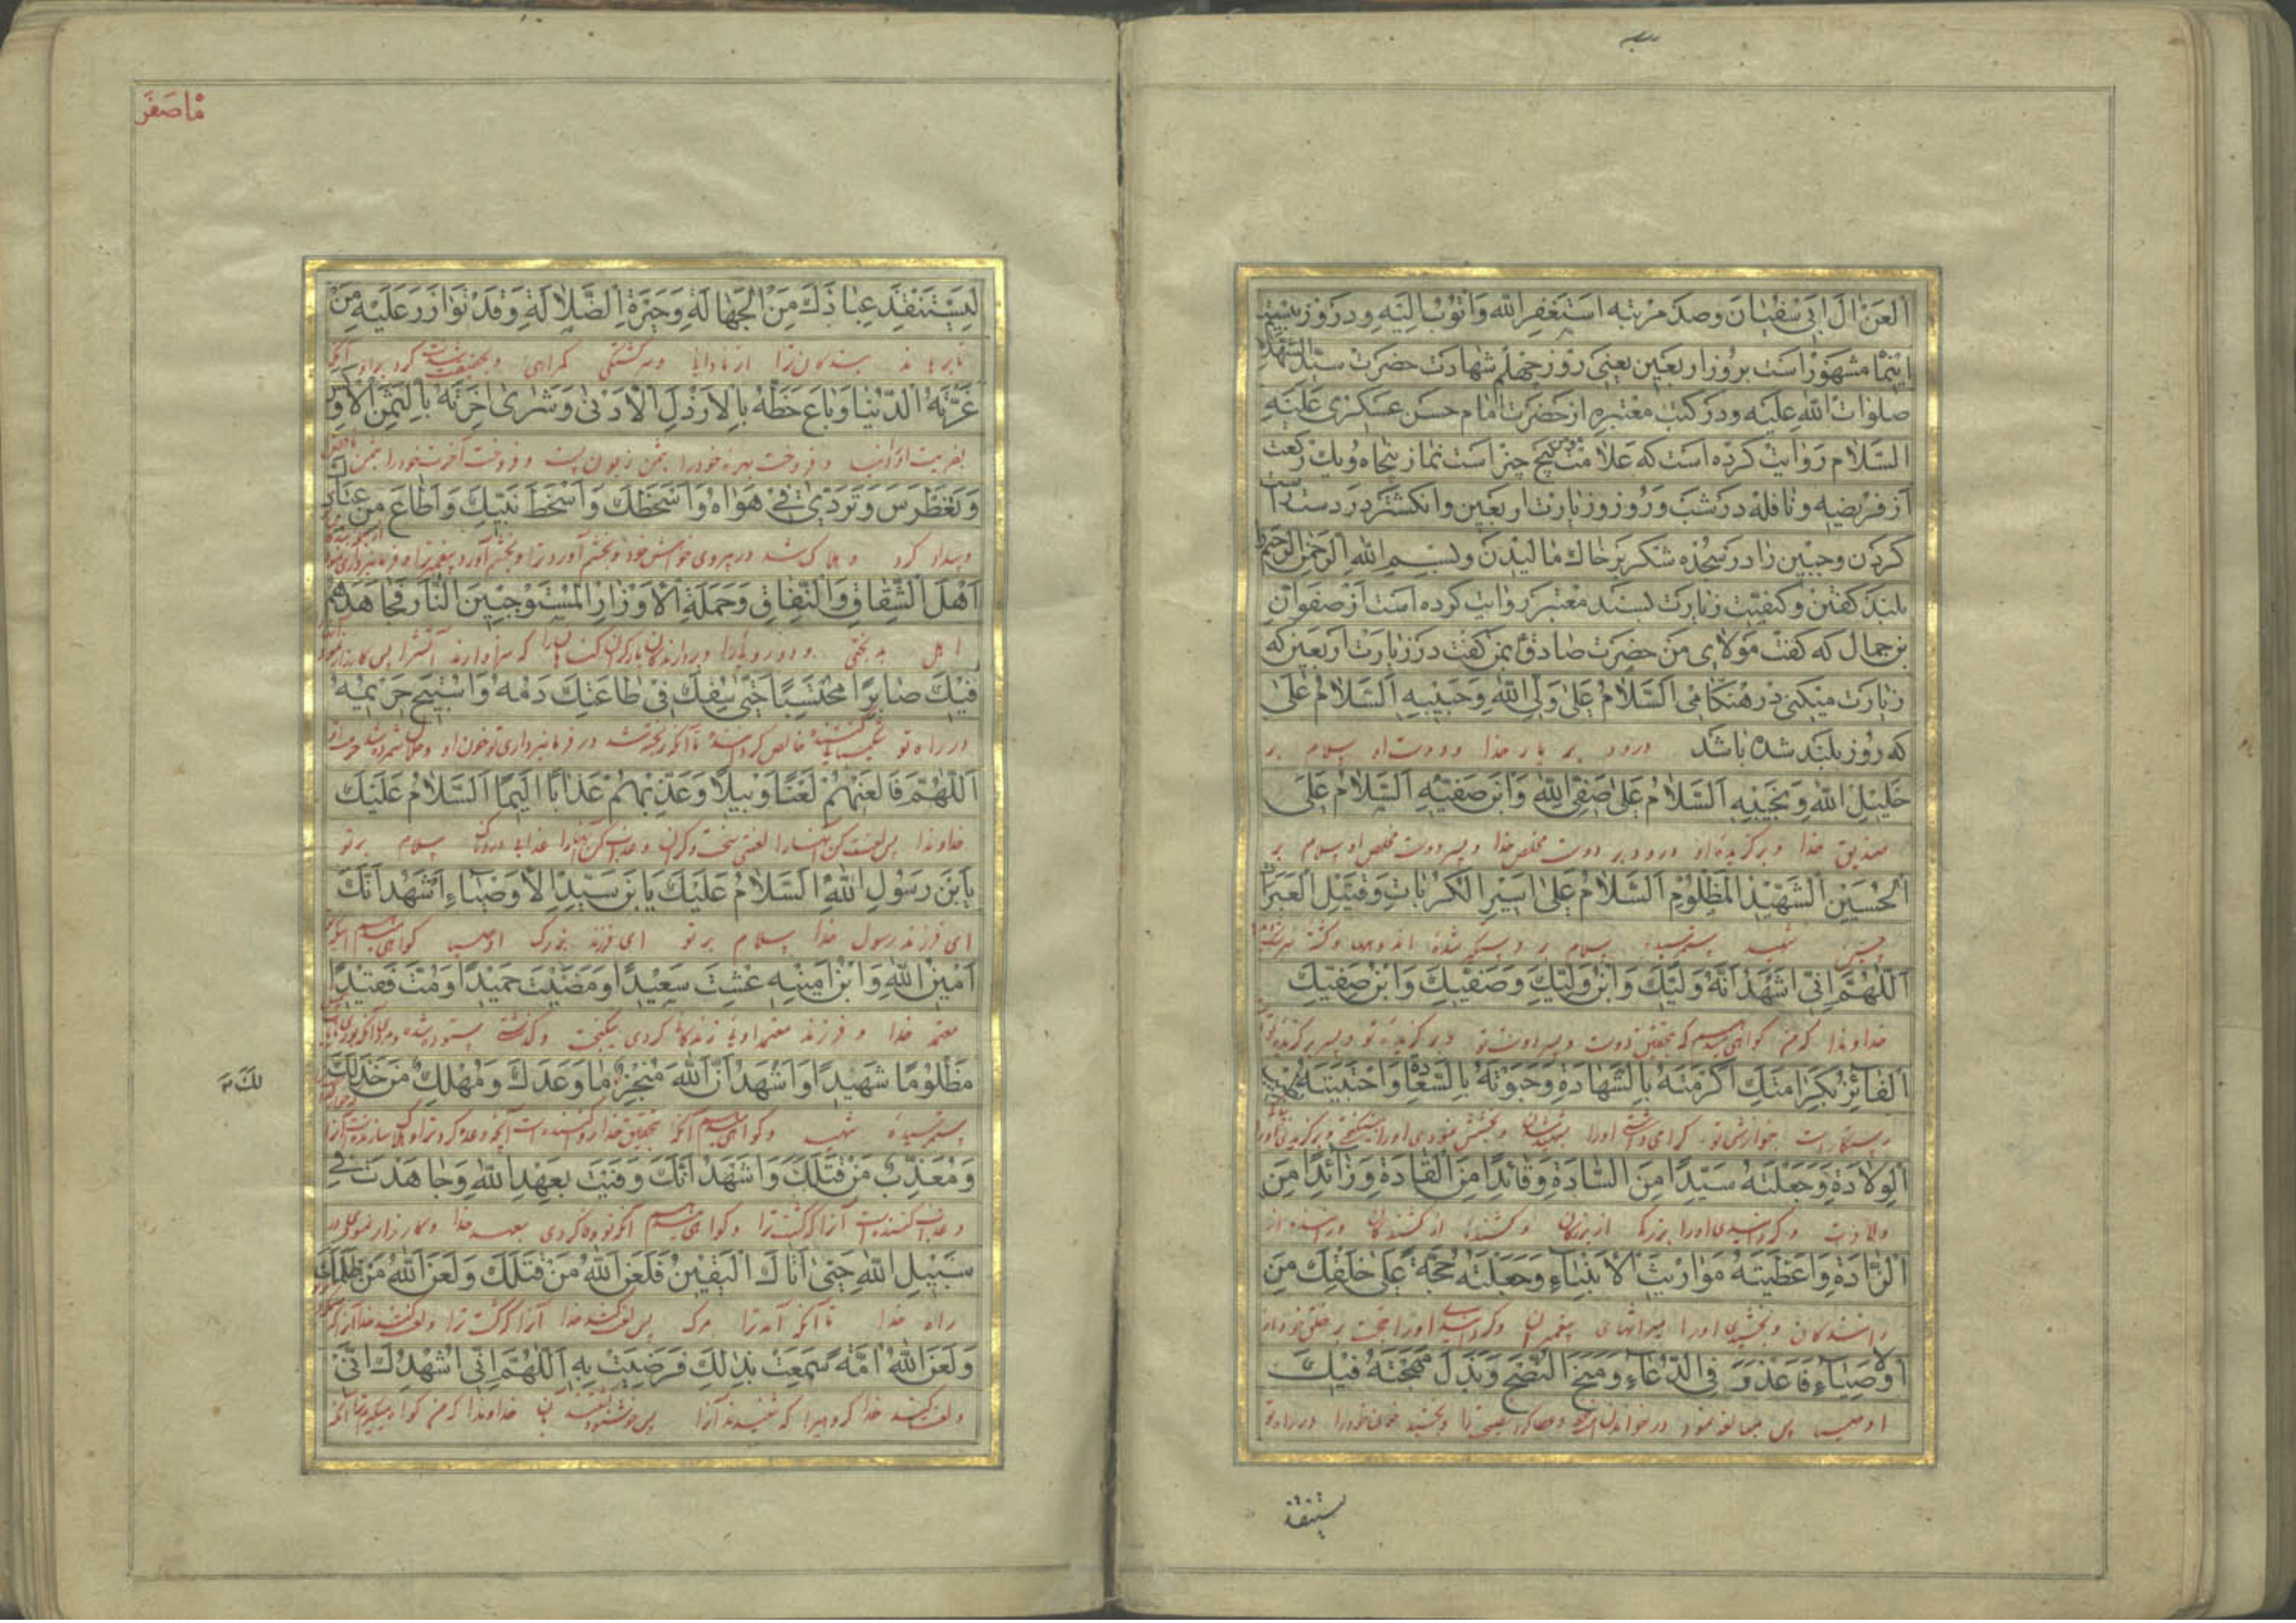 اَلْعَنْ آلَ اَبِي سُفْيَانَ وصد مرتبه اَسْتَغْفِرُ اللهَ وَاَتُوبُ اِلَيْهِ ودر روز بيستم
اينماه مشهور است بروز اربعين يعنى روز چهلم شهادت حضرت سيّد الشهداء
صلوات الله عليه ودر كتب معتبره از حضرت امام حسن عسكرى عليه
السلام روايت كرده است كه علامت مؤمن پنج چيز است نماز پنجاه ويك ركعت
از فريضه ونافله در شب وروز وزيارت اربعين وانگشتر در دست راست
كردن وجبين را در سجده شكر بر خاك ماليدن وبسم الله الرحمن الرحيم را
بلند گفتن وكيفيت زيارت بسند معتبر روايت كرده است از صفوان
بن جمال كه گفت مولاى من حضرت صادق ع بمن گفت در زيارت اربعين كه
زيارت ميكنى در هنگامى اَلسَّلَامُ عَلَى وَلِيِّ اللهِ وَحَبِيبِهِ اَلسَّلَامُ عَلَى
كه روز بلند شده باشد درود بر يار خدا ودوست او سلام بر
خَلِيلِ اللهِ وَنَجِيبِهِ اَلسَّلَامُ عَلَى صَفِيِّ اللهِ وَابْنِ صَفِيِّهِ اَلسَّلَامُ عَلَى
صديق خدا وبرگزيده او درود بر دوست مخلص خدا وپسر دوست مخلص او سلام بر
الْحُسَيْنِ الشَّهِيدِ الْمَظْلُومِ اَلسَّلَامُ عَلَى اَسِيرِ الْكُرُبَاتِ وَقَتِيلِ الْعَبَرَاتِ
حسين شهيد ستم رسيده سلام بر دستگير شده اندوهها وكشته
اَللّهُمَّ اِنِّي اَشْهَدُ اَنَّهُ وَلِيُّكَ وَابْنُ وَلِيِّكَ وَصَفِيُّكَ وَابْنُ صَفِيِّكَ
خداوندا كه من گواهى ميدهم كه بتحقيق دوست وپسر دوست تو وبرگزيده تو وپسر برگزيده تو
الْفَائِزُ بِكَرَامَتِكَ اَكْرَمْتَهُ بِالشَّهَادَةِ وَحَبَوْتَهُ بِالسَّعَادَةِ وَاجْتَبَيْتَهُ بِطِيبِ
رستگار است بنوازش تو گرامى داشتى اورا بشهيد شدن وبخشش نمودى اورا وبرگزيدى اورا
الْوِلَادَةِ وَجَعَلْتَهُ سَيِّدًا مِنَ السَّادَةِ وَقَائِدًا مِنَ الْقَادَةِ وَذَائِدًا مِنَ
ولادت وگردانيدى اورا بزرگى از بزرگان وكشنده از كشندگان وراننده از
الذَّادَةِ وَاَعْطَيْتَهُ مَوَارِيثَ الْاَنْبِيَاءِ وَجَعَلْتَهُ حُجَّةً عَلَى خَلْقِكَ مِنَ
رانندگان وبخشيدى اورا ميراثهاى پيغمبران وگردانيدى اورا حجت بر خلق خود از
الْاَوْصِيَاءِ فَاَعْذَرَ فِي الدُّعَاءِ وَمَنَحَ النُّصْحَ وَبَذَلَ مُهْجَتَهُ فِيكَ
اوصيا پس مبالغه نمود در خواندن وعطا كرد نصيحت را وبخشيد خون خود را در راه تو
يستنقذ
ماه صفر
لِيَسْتَنْقِذَ عِبَادَكَ مِنَ الْجَهَالَةِ وَحَيْرَةِ الضَّلَالَةِ وَقَدْ تَوَازَرَ عَلَيْهِ مَنْ
تا برهاند بندگان ترا از نادانى وسرگشتگى گمراهى وبتحقيق پشت كرد بر او آنكه
غَرَّتْهُ الدُّنْيَا وَبَاعَ حَظَّهُ بِالْاَرْذَلِ الْاَدْنَى وَشَرَى آخِرَتَهُ بِالثَّمَنِ الْاَوْكَسِ
بفريفت او را دنيا وفروخت بهره خود را بثمن زبون پست وفروخت آخرت خود را بثمن
وَتَغَطْرَسَ وَتَرَدَّى فِي هَوَاهُ وَاَسْخَطَكَ وَاَسْخَطَ نَبِيَّكَ وَاَطَاعَ مِنْ عِبَادِكَ
وهلاك شد در پيروى خواهش خود وبخشم آورد ترا وبخشم آورد پيغمبر ترا وفرمانبردارى نمود
اَهْلَ الشِّقَاقِ وَالنِّفَاقِ وَحَمَلَةَ الْاَوْزَارِ الْمُسْتَوْجِبِينَ النَّارَ فَجَاهَدَهُمْ
اهل بدبختى ودوروئى را وبردارندگان بار گران گناهان را كه سزاوارند آتش را پس كارزار نمود
فِيكَ صَابِرًا مُحْتَسِبًا حَتَّى سُفِكَ فِي طَاعَتِكَ دَمُهُ وَاسْتُبِيحَ حَرِيمُهُ
در راه تو شكيبا تا آنكه ريخته شد در فرمانبردارى تو خون او وحلال شمرده شد حرمت او
اَللّهُمَّ فَالْعَنْهُمْ لَعْنًا وَبِيلًا وَعَذِّبْهُمْ عَذَابًا اَلِيمًا اَلسَّلَامُ عَلَيْكَ
خداوندا پس لعنت كن آنهارا لعنتى سخت وگران وعذاب كن آنهارا عذابى دردناك سلام بر تو
يَابْنَ رَسُولِ اللهِ اَلسَّلَامُ عَلَيْكَ يَابْنَ سَيِّدِ الْاَوْصِيَاءِ اَشْهَدُ اَنَّكَ
اى فرزند رسول خدا سلام بر تو اى فرزند بزرگ اوصيا گواهى ميدهم اينكه تو
اَمِينُ اللهِ وَابْنُ اَمِينِهِ عِشْتَ سَعِيدًا وَمَضَيْتَ حَمِيدًا وَمُتَّ فَقِيدًا
معتمد خدا وفرزند معتمد اوئى زندگانى كردى نيكبخت وگذشتى ستوده شده
مَظْلُومًا شَهِيدًا وَاَشْهَدُ اَنَّ اللهَ مُنْجِزٌ مَا وَعَدَكَ وَمُهْلِكٌ مَنْ خَذَلَكَ
ستم رسيده شهيد وگواهى ميدهم آنكه بتحقيق خدا روا كننده است آنچه وعده كرد ترا وهلاك سازنده است آنرا
وَمُعَذِّبٌ مَنْ قَتَلَكَ وَاَشْهَدُ اَنَّكَ وَفَيْتَ بِعَهْدِ اللهِ وَجَاهَدْتَ فِي
وعذاب كننده است آنرا كه كشت ترا وگواهى ميدهم آنكه تو وفا كردى بعهد خدا وكارزار نمودى در
سَبِيلِ اللهِ حَتَّى اَتَاكَ الْيَقِينُ فَلَعَنَ اللهُ مَنْ قَتَلَكَ وَلَعَنَ اللهُ مَنْ ظَلَمَكَ
راه خدا تا آنكه آمد ترا مرگ پس لعنت كند خدا آنرا كه كشت ترا ولعنت كند خدا آنرا كه
وَلَعَنَ اللهُ اُمَّةً سَمِعَتْ بِذَلِكَ فَرَضِيَتْ بِهِ اَللّهُمَّ اِنِّي اُشْهِدُكَ اَنِّي
ولعنت كند خدا گروهيرا كه شنيدند آنرا پس خوشنود شدند بآن خداوندا كه من گواه ميگيرم ترا آنكه